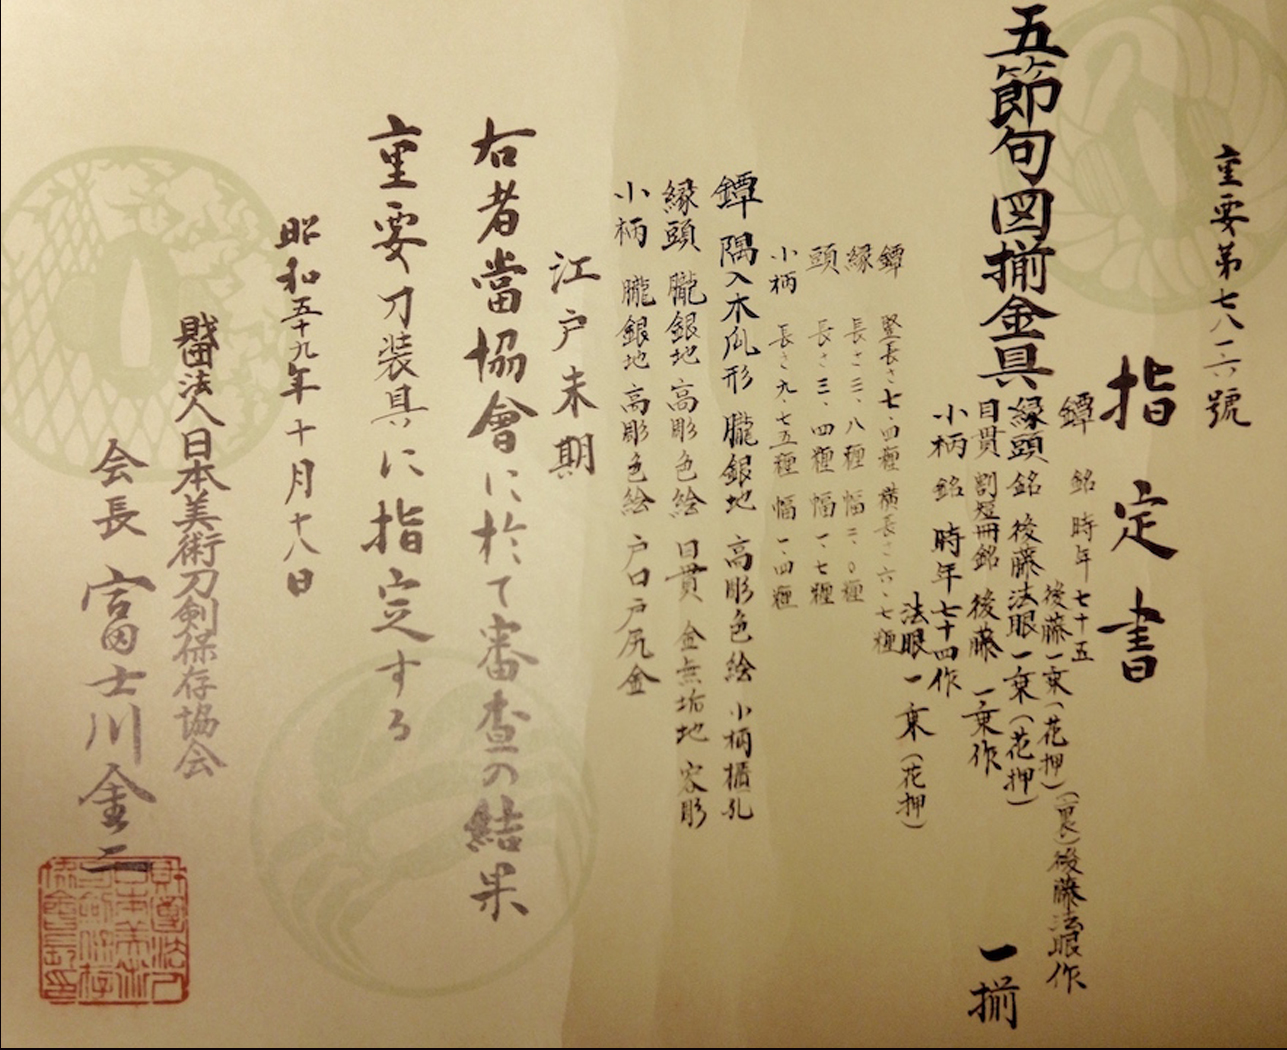 重要第七八二六號
指定書
五節句図揃金具
鐔 銘 時年七十五 後藤一乗(花押)(裏)後藤法眼作
縁頭 銘 後藤法眼一乗(花押)
目貫 割短冊銘 後藤 一乗作
小柄 銘 時年七十四作 法眼一乗(花押)
一揃
鐔 竪長さ七・四糎 横長さ六・七糎
縁 長さ三・八糎 幅二・〇糎
頭 長さ三・四糎 幅一・七糎
小柄 長さ九・七五糎 幅一・四糎
鐔 隅入木瓜形 朧銀地 高彫色絵 小柄櫃孔
縁頭 朧銀地 高彫色絵 目貫 金無垢地 容彫
小柄 朧銀地 高彫色絵 戸口戸尻金
江戸末期
右者當協會に於て審査の結果
重要刀装具に指定する
昭和五十九年十月十八日
財団法人日本美術刀剣保存協会
会長 富士川金二